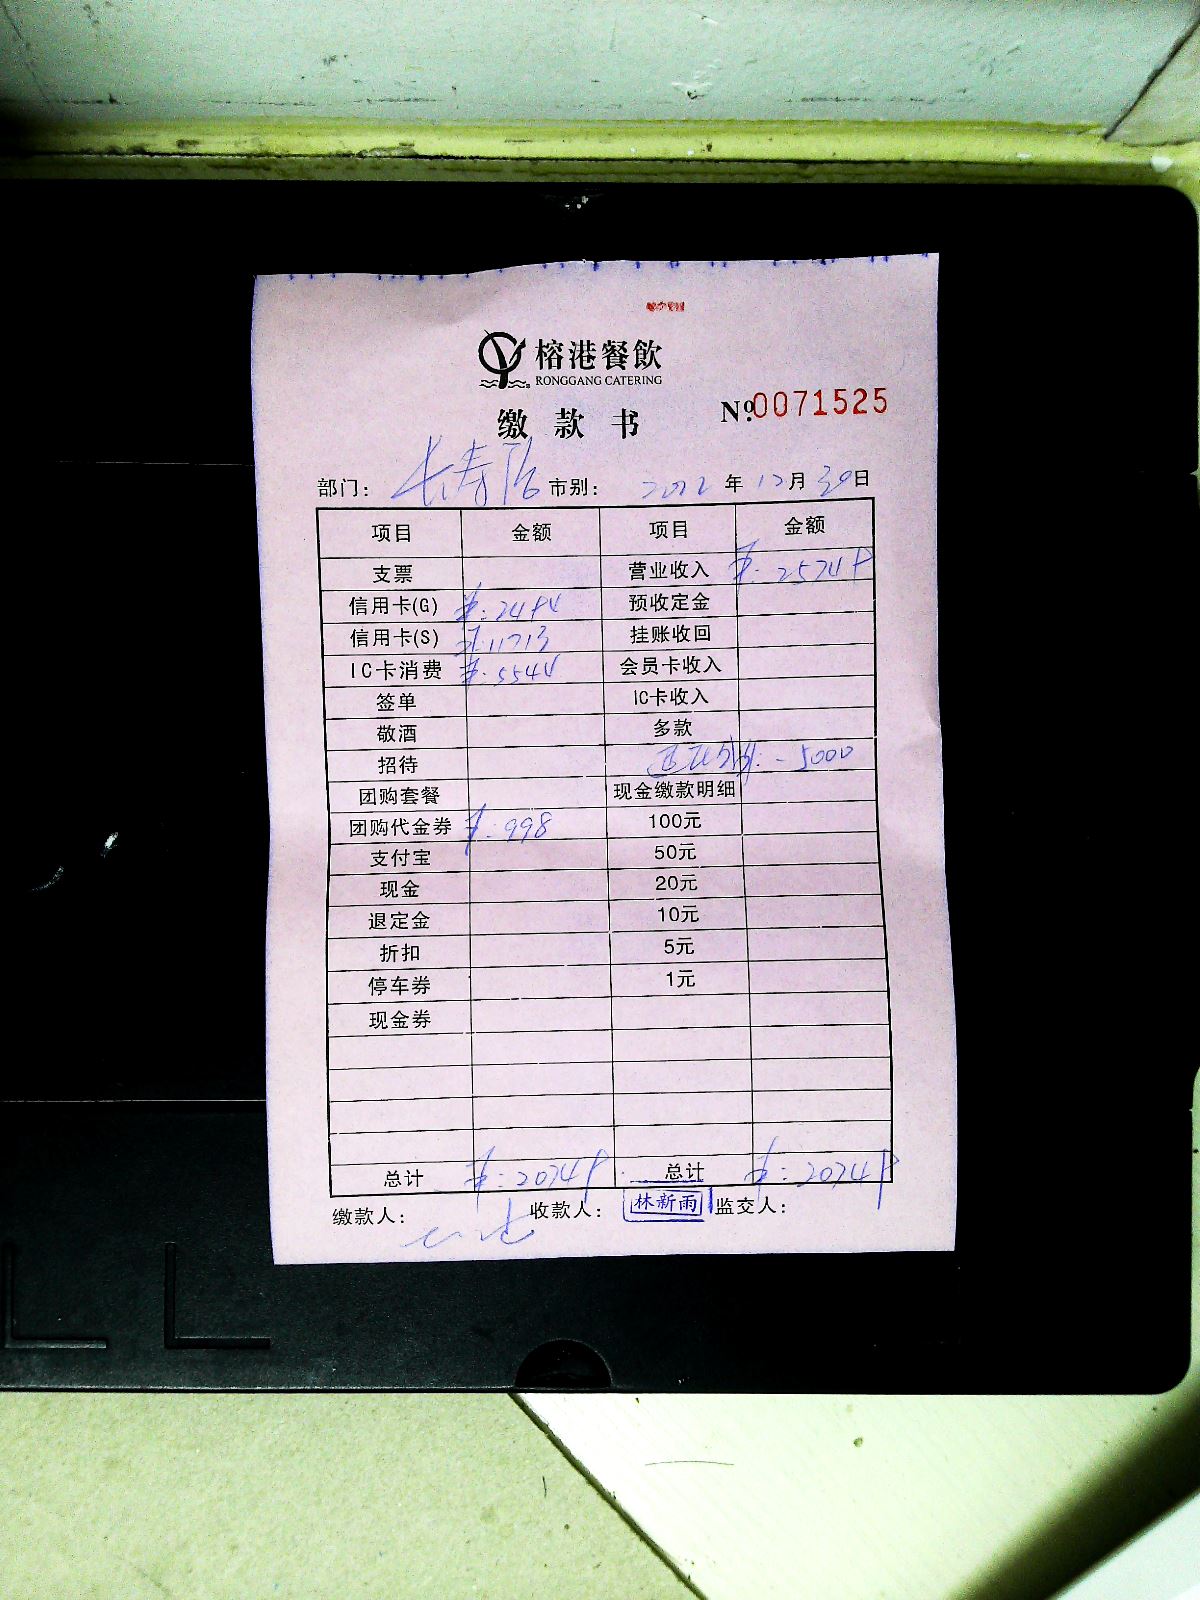 榕港餐飲
RONGGANG CATERING
缴款书
No.0071525
部门: 长寿路 市别: 2022年12月30日
项目 金额 项目 金额
支票 营业收入 ¥:25749
信用卡(G) ¥:2494 预收定金
信用卡(S) ¥:11713 挂账收回
IC卡消费 ¥:5544 会员卡收入
签单 IC卡收入
敬酒 多款
招待 -5000
团购套餐 现金缴款明细
团购代金券 ¥:998 100元
支付宝 50元
现金 20元
退定金 10元
折扣 5元
停车券 1元
现金券
总计 ¥:20749 总计 ¥:20749
缴款人: 收款人: 林新雨 监交人: